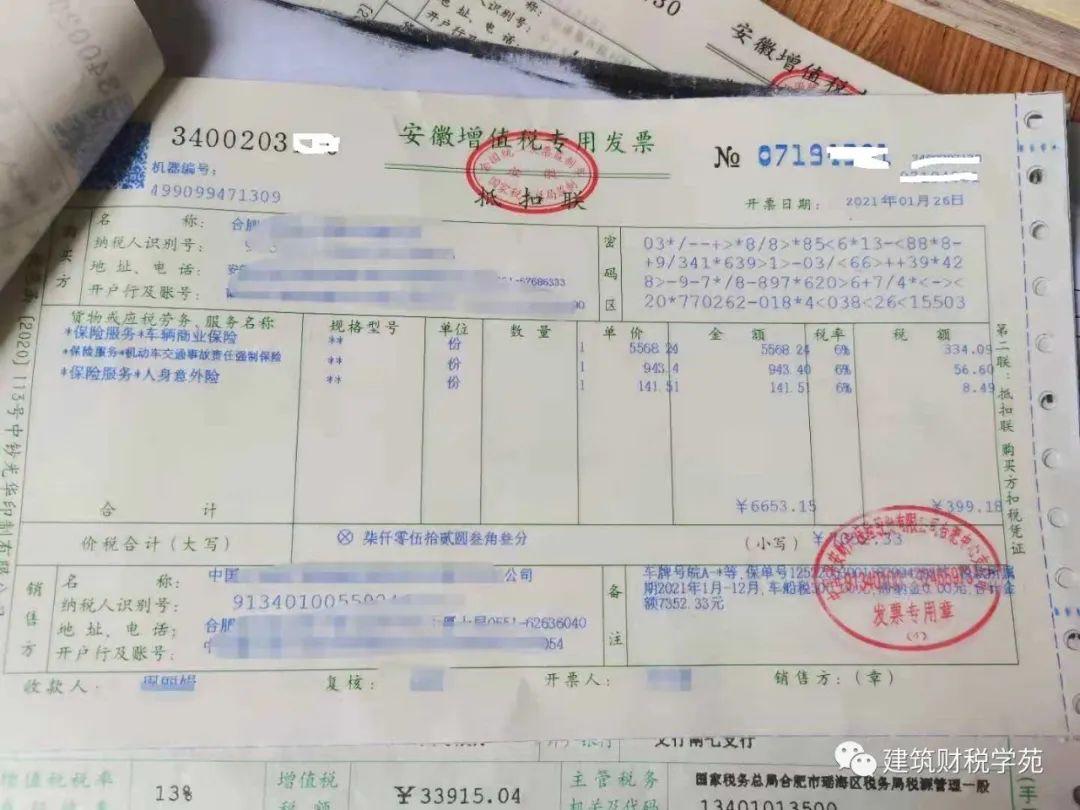 安徽增值税
3400203
安徽增值税专用发票
№ 0719
机器编号：
499099471309
抵扣联
开票日期： 2021年01月26日
购买方
名 称： 合肥
纳税人识别号：
地址、电话： 67686333
开户行及账号： 00
密码区
03*/--+>*8/8>*85<6*13-<88*8-
+9/341*639>1>-03/<66>++39*42
8>-9-7*/8-897*620>6+7/4*<-><
20*770262-018*4<038<26<15503
货物或应税劳务、服务名称 规格型号 单位 数量 单价 金额 税率 税额
*保险服务*车辆商业保险 ** 份 1 5568.24 5568.24 6% 334.09
*保险服务*机动车交通事故责任强制保险 ** 份 1 943.4 943.40 6% 56.60
*保险服务*人身意外险 ** 份 1 141.51 141.51 6% 8.49
合 计 ￥6653.15 ￥399.18
价税合计（大写） ⊗ 柒仟零伍拾贰圆叁角叁分 （小写）
销售方
名 称： 中国 公司
纳税人识别号： 91340100550
地址、电话： 合肥 0551-62636040
开户行及账号： 054
备注
车牌号皖A-*等，保单号
期2021年1月-12月，车船税
额7352.33元
发票专用章
(4)
收款人： 复核： 开票人： 销售方：（章）
第二联：抵扣联 购买方扣税凭证
[2020]113号中钞光华印制有限公司
增值税税率 13% 增值税税额 ￥33915.04 主管税务机关及代码 国家税务总局合肥市瑶海区税务局税源管理一股
13401013500
建筑财税学苑